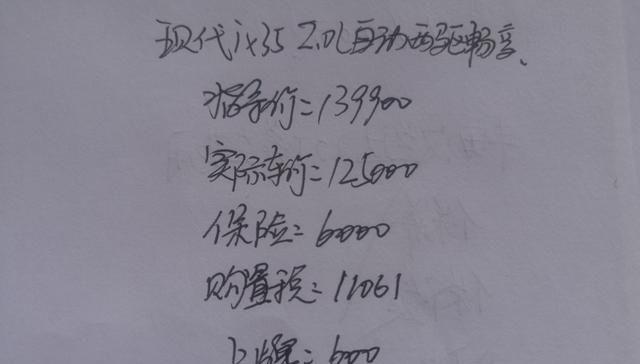 现代ix35 2.0L自动两驱畅享、
指导价=139900
实际车价=125000
保险=6000
购置税=11061
上牌=600